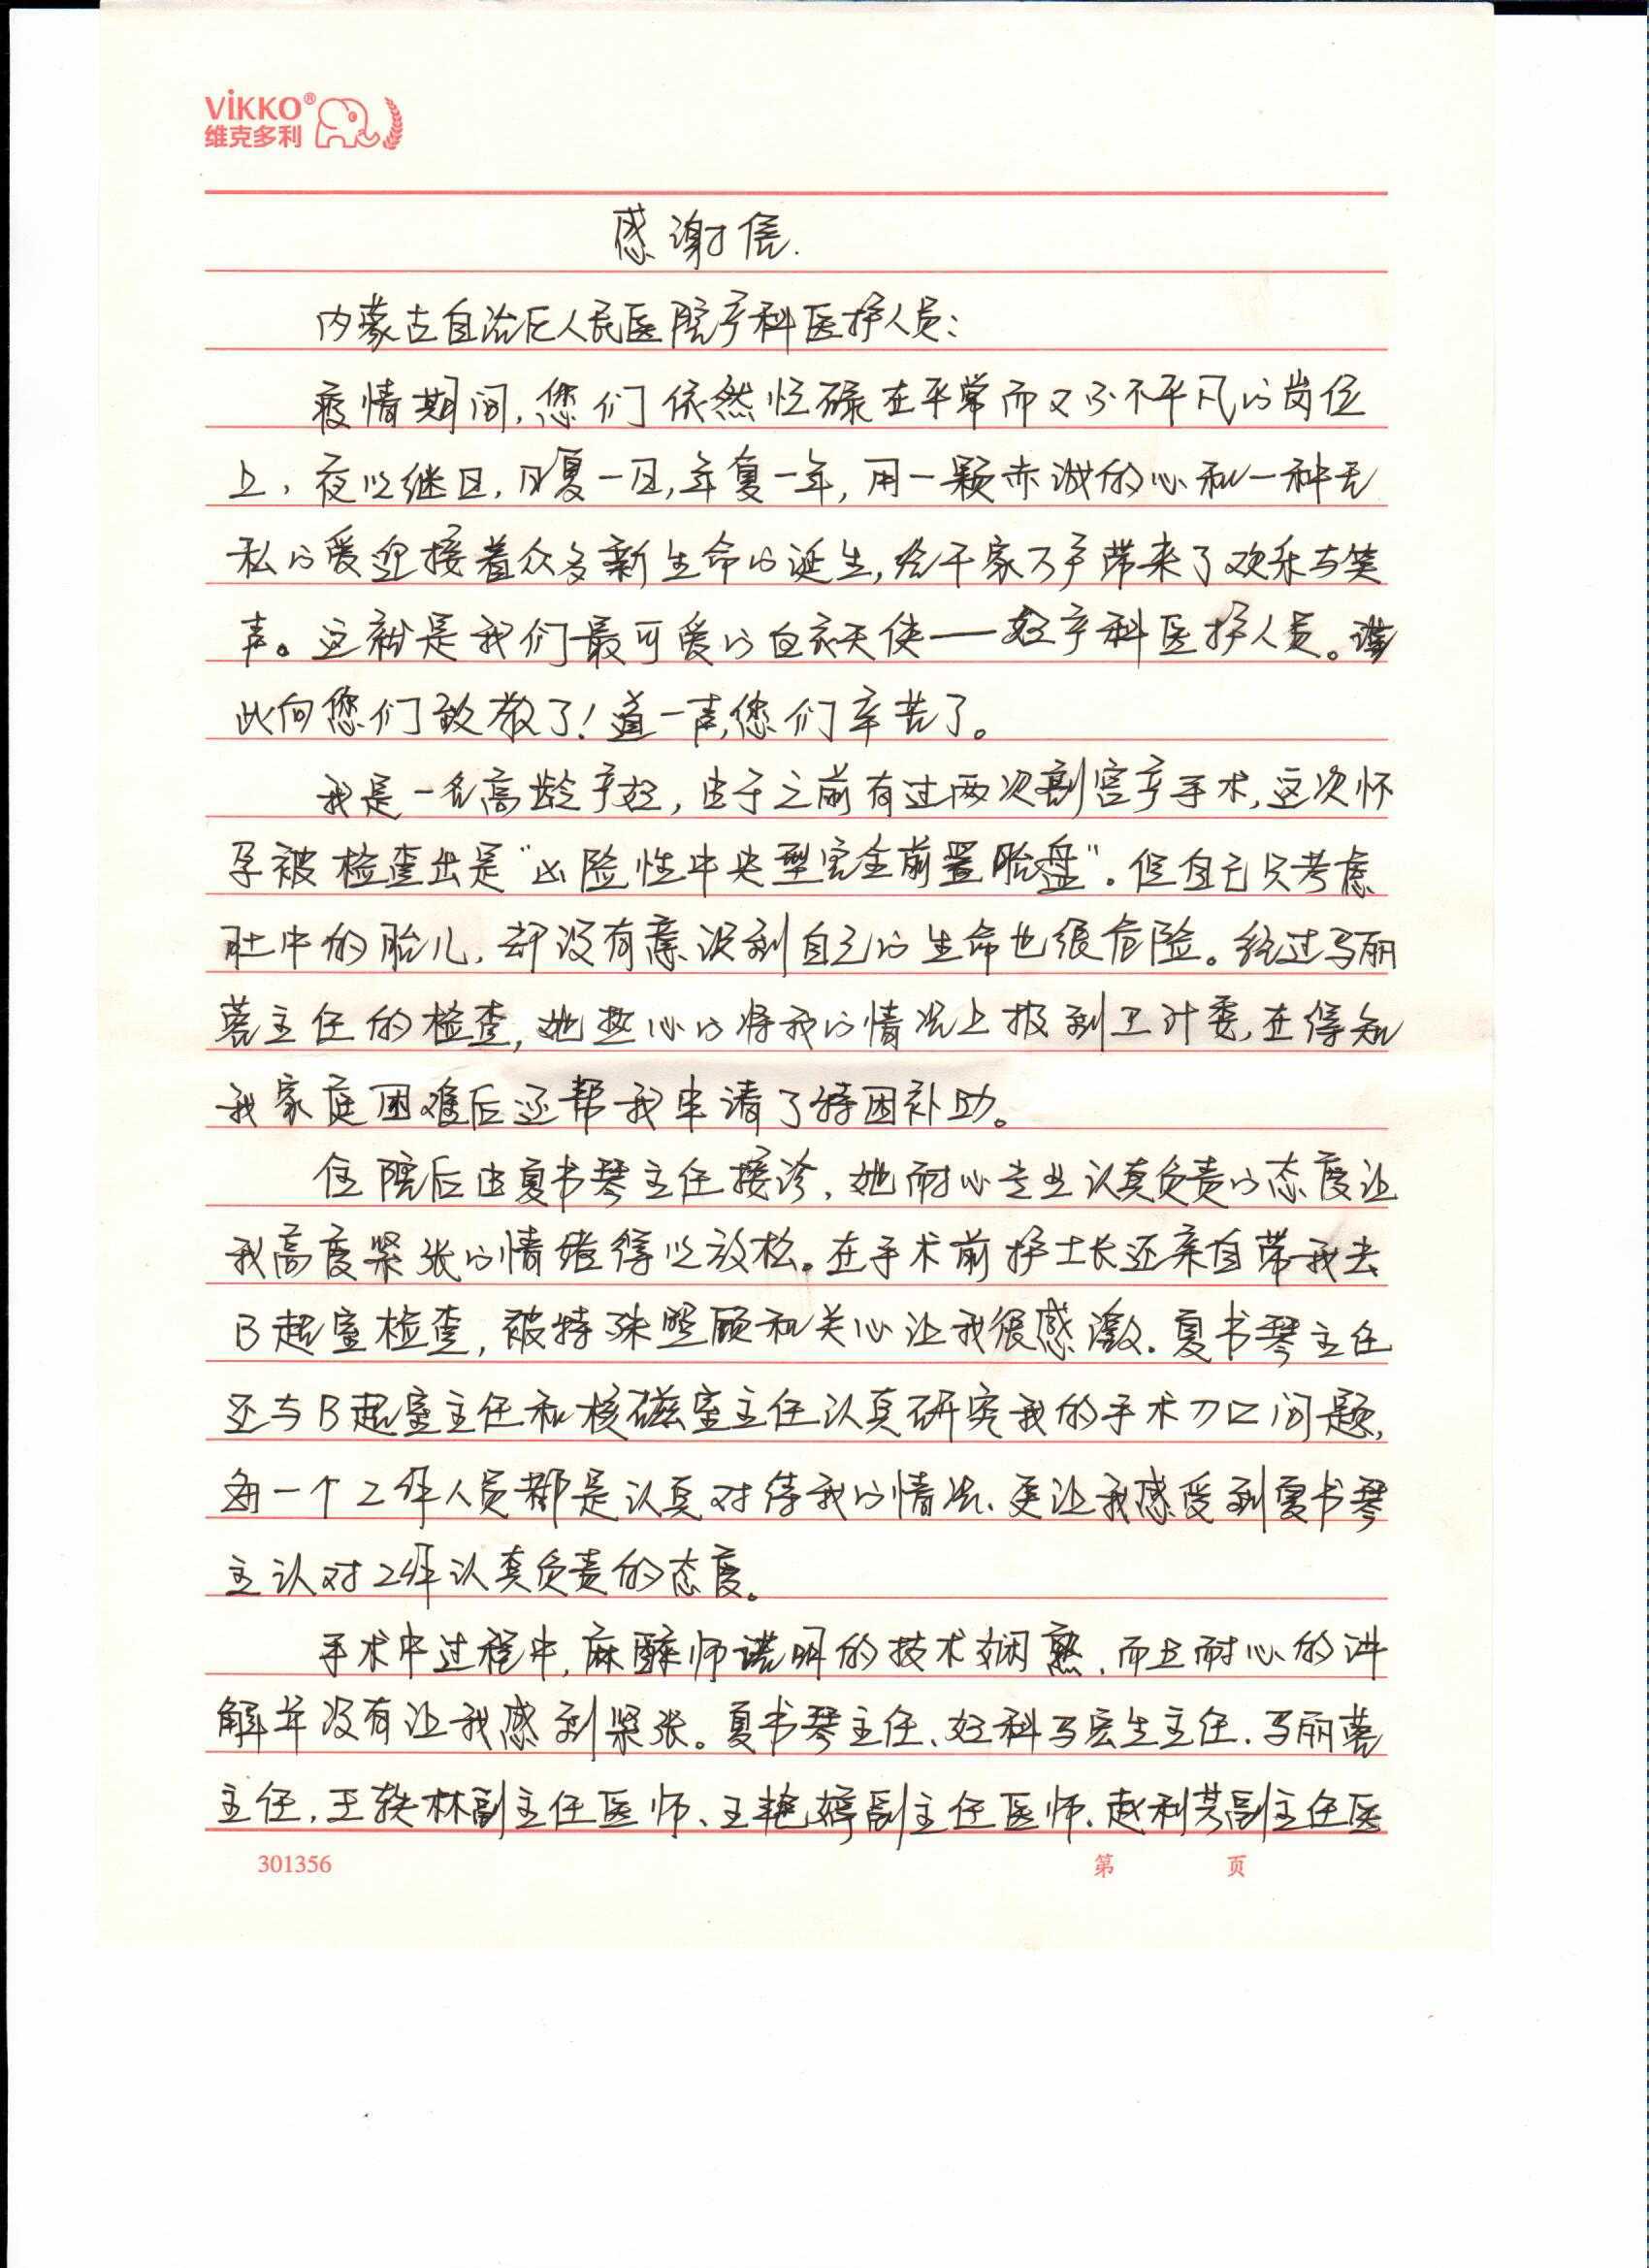 ViKKO®
维克多利
感谢信.
内蒙古自治区人民医院产科医护人员：
疫情期间,您们依然忙碌在平常而又不平凡的岗位
上,夜以继日,日复一日,年复一年,用一颗赤诚的心和一种无
私的爱迎接着众多新生命的诞生,给千家万户带来了欢乐与笑
声。这就是我们最可爱的白衣天使——妇产科医护人员。谨
此向您们致敬了!道一声,您们辛苦了。
我是一名高龄产妇,由于之前有过两次剖宫产手术,这次怀
孕被检查出是"凶险性中央型完全前置胎盘"。但自己只考虑
肚中的胎儿,却没有意识到自己的生命也很危险。经过马丽
蓉主任的检查,她热心的将我的情况上报到卫计委,在得知
我家庭困难后还帮我申请了特困补助。
住院后由夏书琴主任接诊,她耐心专业认真负责的态度让
我高度紧张的情绪得以放松。在手术前护士长还亲自带我去
B超室检查,被特殊照顾和关心让我很感激.夏书琴主任
还与B超室主任和核磁室主任认真研究我的手术刀口问题,
每一个工作人员都是认真对待我的情况、更让我感受到夏书琴
主认对工作认真负责的态度。
手术中过程中,麻醉师诺明的技术娴熟,而且耐心的讲
解并没有让我感到紧张。夏书琴主任、妇科马宏生主任.马丽蓉
主任,王轶林副主任医师、王艳婷副主任医师、赵利芬副主任医
301356 第 页